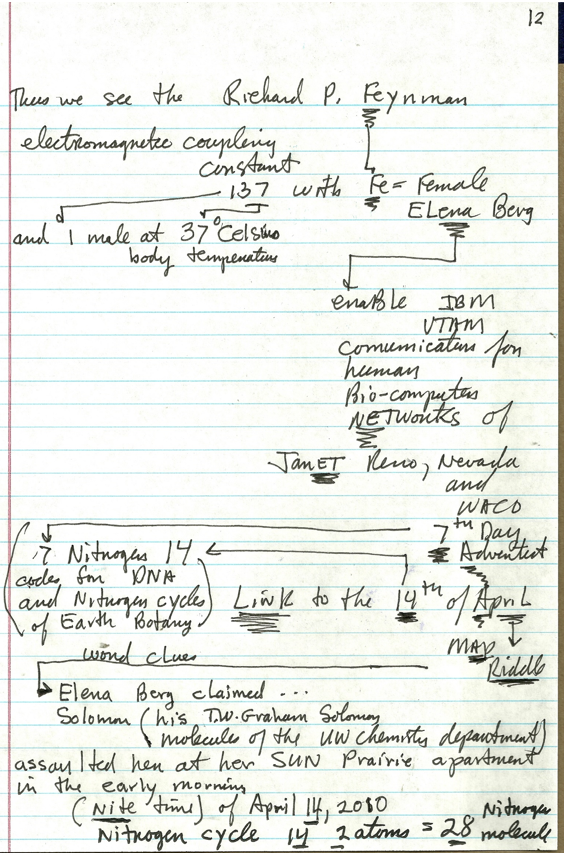 12
Thus we see the Richard P. Feynman
electromagnetic coupling
constant
137 with Fe = Female
ELena Berg
and 1 male at 37° Celsius
body temperature
enaBle IBM
VTAM
communicators for
human
Bio-computers
NETWorks of
JanET Reno, Nevada
and
WACO
7th Day
Adventist
7 Nitrogens 14
codes for DNA
and Nitrogen cycles
of Earth Botany
Link to the 14th of April
MAP
Riddle
word clues
Elena Berg claimed ...
Solomon (his T.W. Graham Solomon
molecules of the UW chemistry department)
assaulted her at her SUN Prairie apartment
in the early morning
(Nite time) of April 14, 2010
Nitrogen cycle 14 2 atoms = 28 Nitrogen
molecule